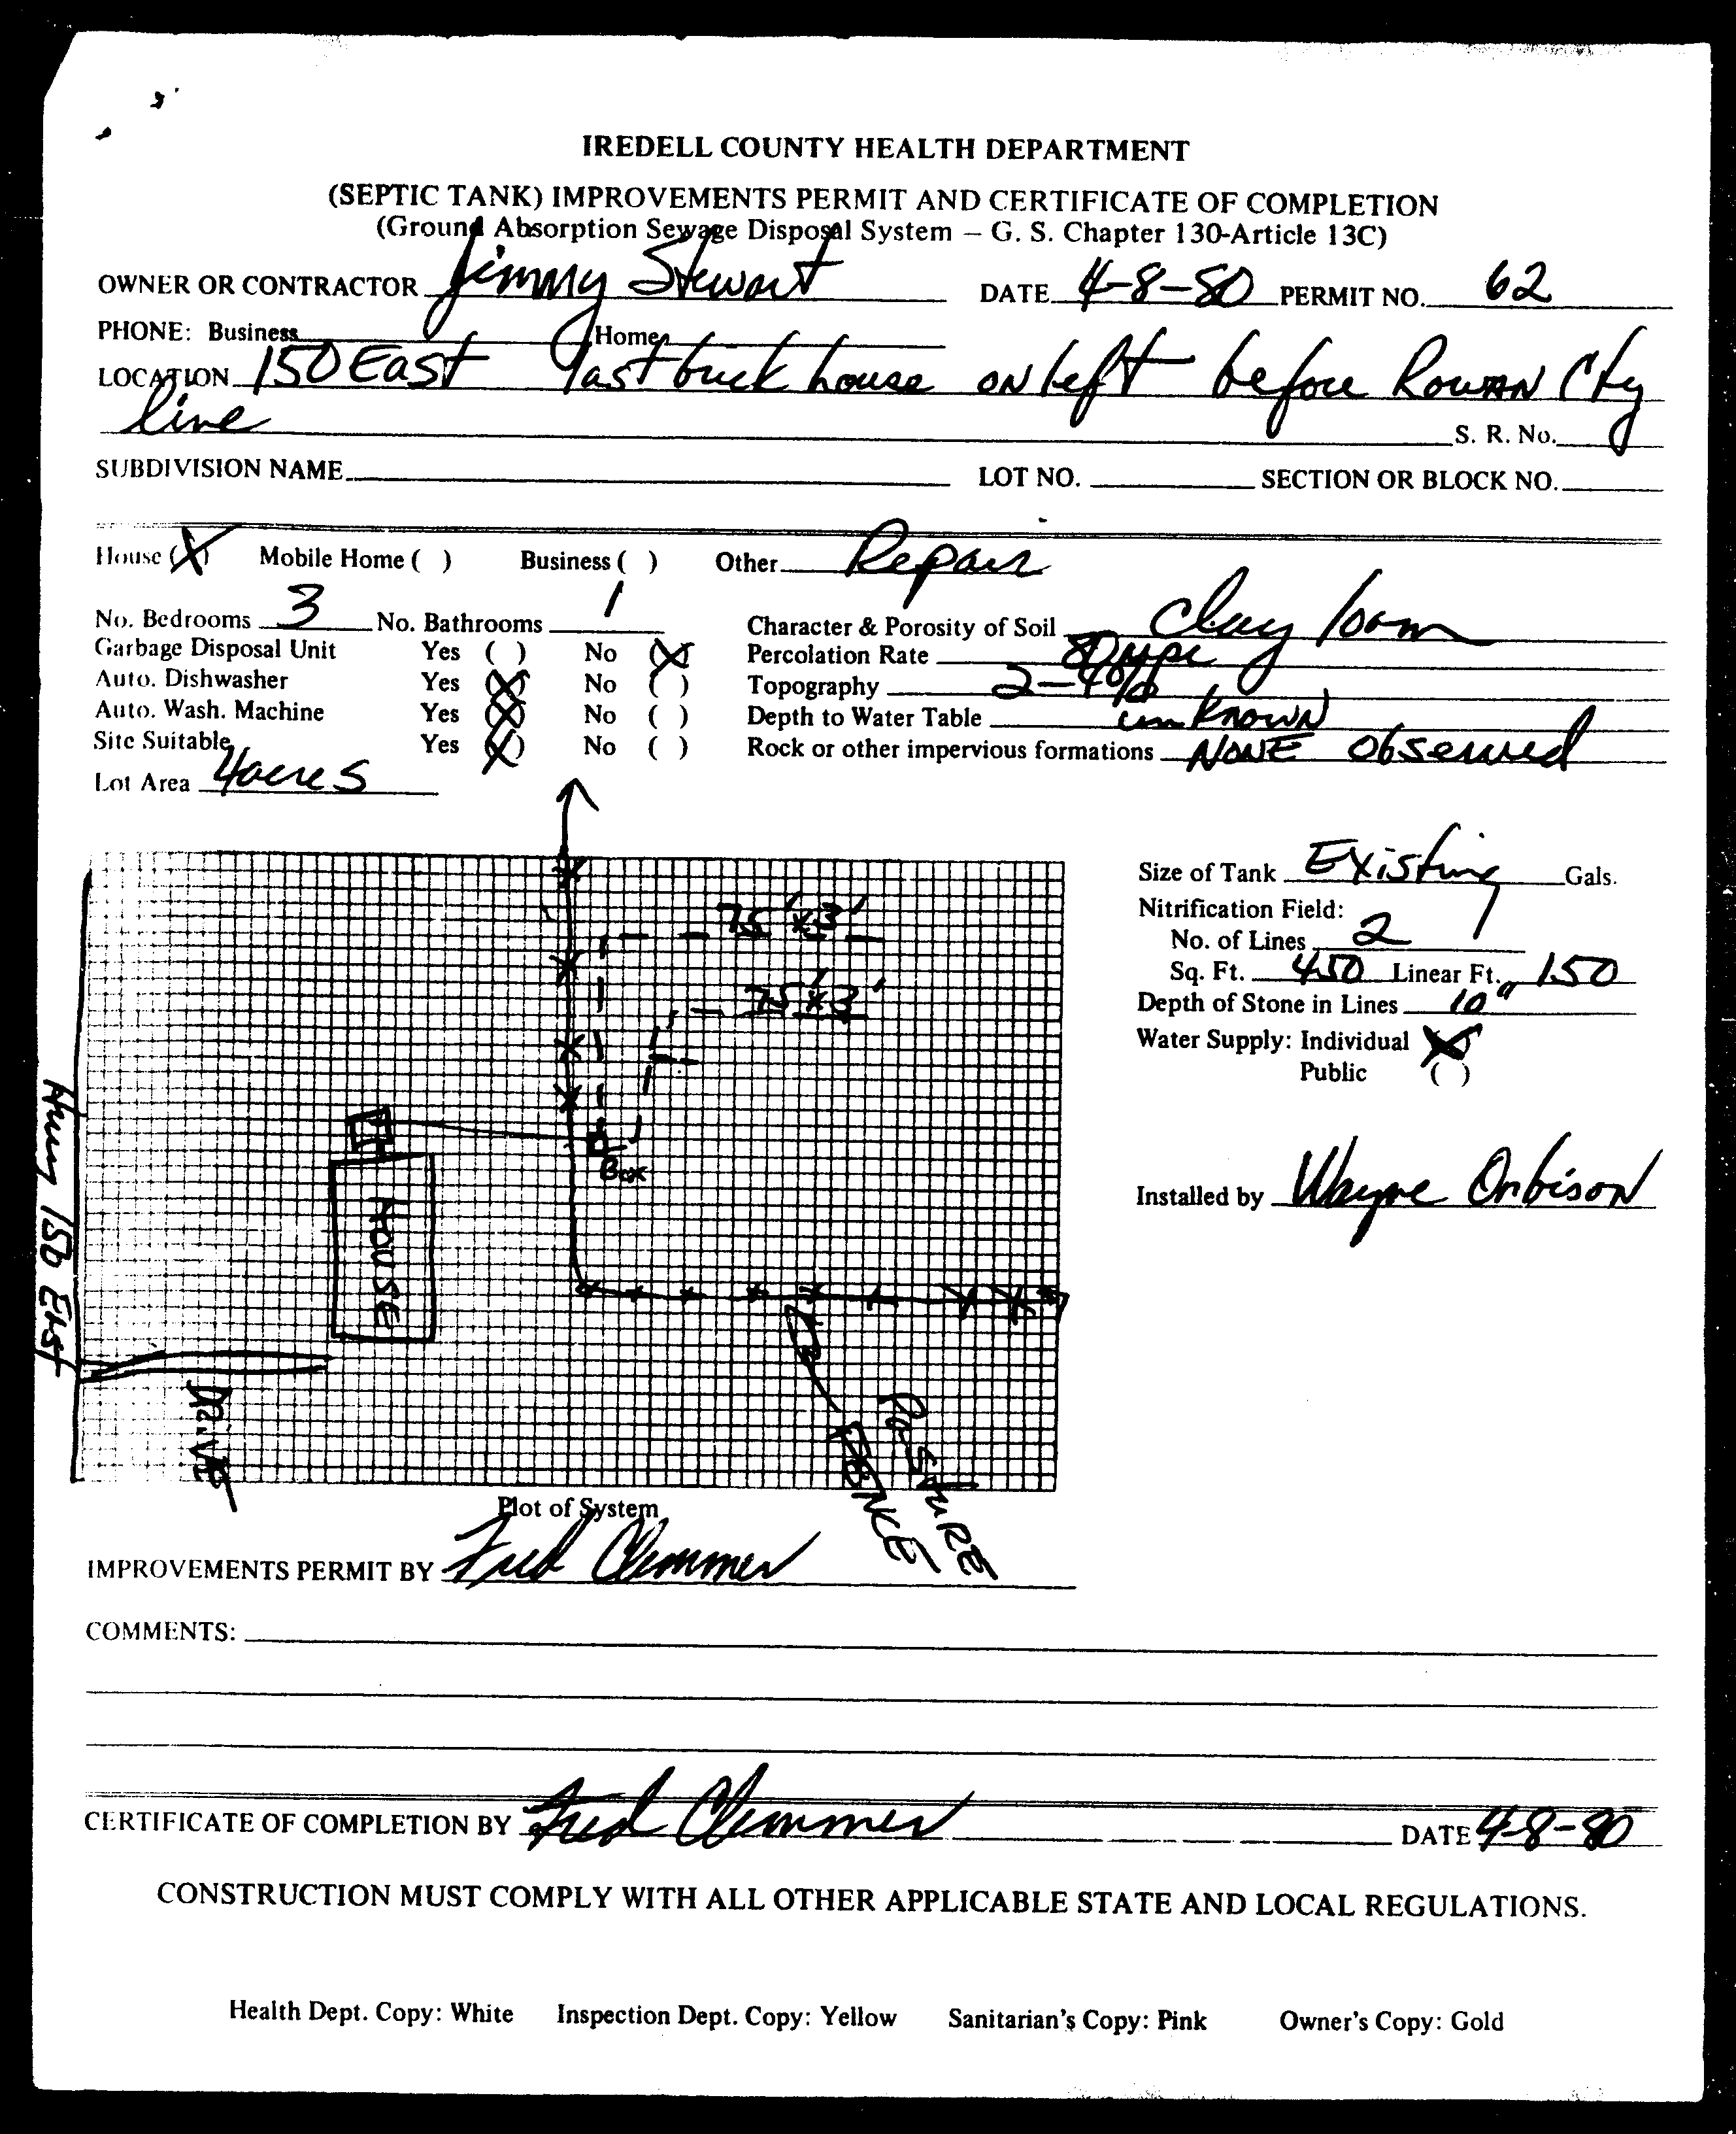 IREDELL COUNTY HEALTH DEPARTMENT
(SEPTIC TANK) IMPROVEMENTS PERMIT AND CERTIFICATE OF COMPLETION
(Ground Absorption Sewage Disposal System – G. S. Chapter 130-Article 13C)
OWNER OR CONTRACTOR Jimmy Stewart DATE 4-8-80 PERMIT NO. 62
PHONE: Business Home
LOCATION 150 East last brick house on left before Rowan Cty
line S. R. No.
SUBDIVISION NAME LOT NO. SECTION OR BLOCK NO.
House (X) Mobile Home ( ) Business ( ) Other Repair
No. Bedrooms 3 No. Bathrooms 1 Character & Porosity of Soil Clay loam
Garbage Disposal Unit Yes ( ) No (X) Percolation Rate 80 mpi
Auto. Dishwasher Yes (X) No ( ) Topography 2-4%
Auto. Wash. Machine Yes (X) No ( ) Depth to Water Table unknown
Site Suitable Yes (X) No ( ) Rock or other impervious formations NONE observed
Lot Area 4 acres
Size of Tank Existing Gals.
Nitrification Field:
No. of Lines 2
Sq. Ft. 450 Linear Ft. 150
Depth of Stone in Lines 10"
Water Supply: Individual (X)
Public ( )
Installed by Wayne Orbison
75' x 3'
75' x 3'
Box
HOUSE
Hwy 150 East
DRIVE
FENCE
PASTURE
Plot of System
IMPROVEMENTS PERMIT BY Fred Clemmer
COMMENTS:
CERTIFICATE OF COMPLETION BY Fred Clemmer DATE 4-8-80
CONSTRUCTION MUST COMPLY WITH ALL OTHER APPLICABLE STATE AND LOCAL REGULATIONS.
Health Dept. Copy: White Inspection Dept. Copy: Yellow Sanitarian's Copy: Pink Owner's Copy: Gold